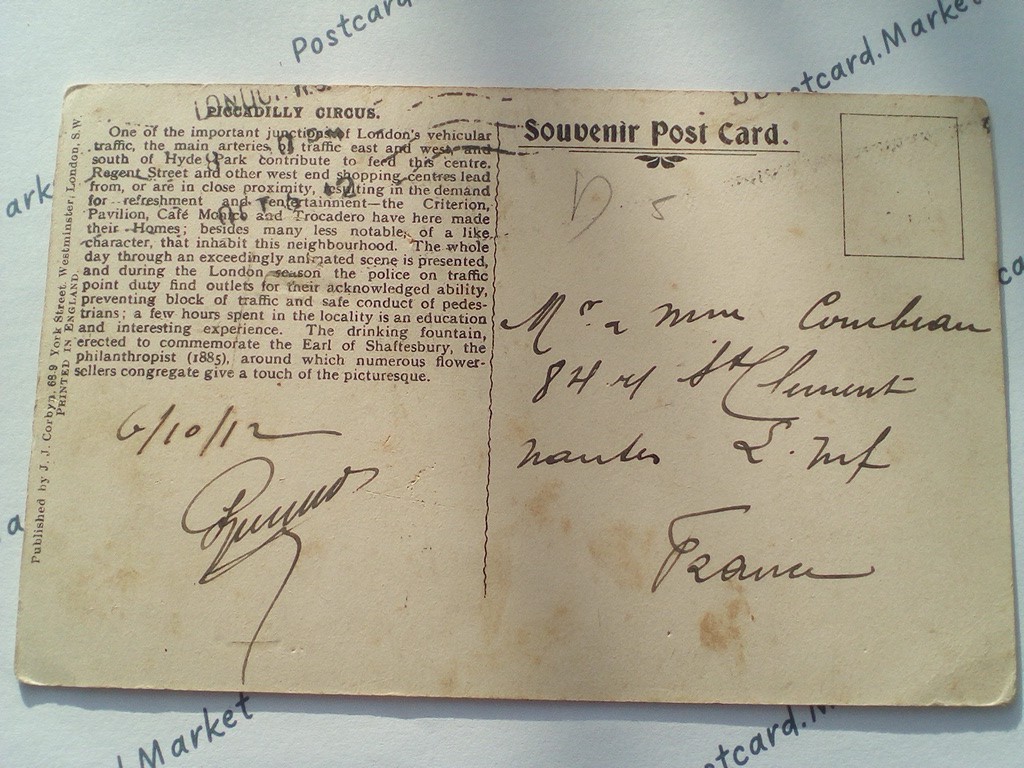 Postcard
Postcard.Market
PICCADILLY CIRCUS.
One of the important junctions of London's vehicular
traffic, the main arteries of traffic east and west, and
south of Hyde Park contribute to feed this centre.
Regent Street and other west end shopping centres lead
from, or are in close proximity, resulting in the demand
for refreshment and entertainment—the Criterion,
Pavilion, Café Monico and Trocadero have here made
their Homes; besides many less notable, of a like
character, that inhabit this neighbourhood. The whole
day through an exceedingly animated scene is presented,
and during the London season the police on traffic
point duty find outlets for their acknowledged ability,
preventing block of traffic and safe conduct of pedes-
trians; a few hours spent in the locality is an education
and interesting experience. The drinking fountain,
erected to commemorate the Earl of Shaftesbury, the
philanthropist (1885), around which numerous flower-
sellers congregate give a touch of the picturesque.
Published by J. J. Corbyn, 68-9 York Street, Westminster, London, S.W.
PRINTED IN ENGLAND.
6/10/12
SOUVENIR POST CARD.
D. 5
Mr & Mme
84 St Clement
Nantes L. Inf
France
Market